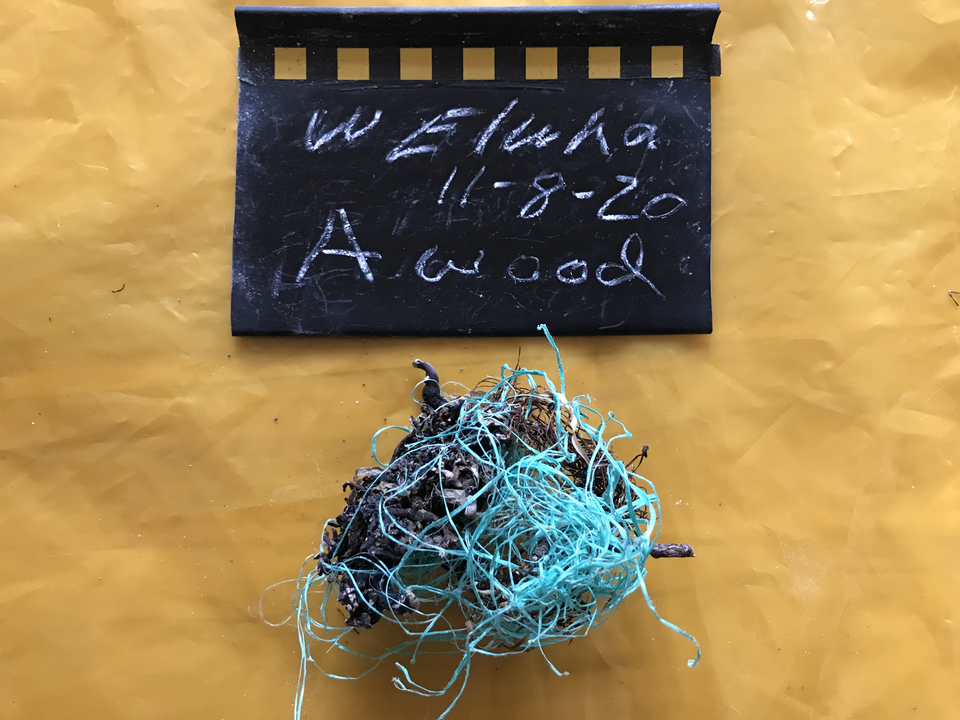 W Elwha
11-8-20
A wood